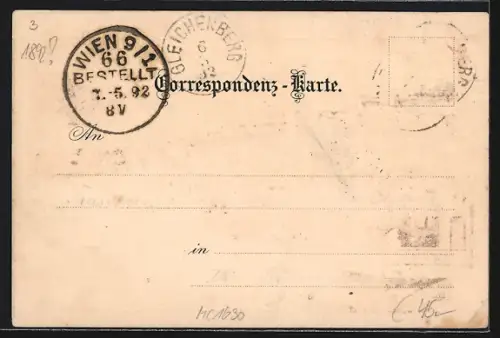 3
1892?
WIEN 9/1
66
BESTELLT
7.5.92
8V
GLEICHENBERG
6
92
Correspondenz-Karte.
An
in